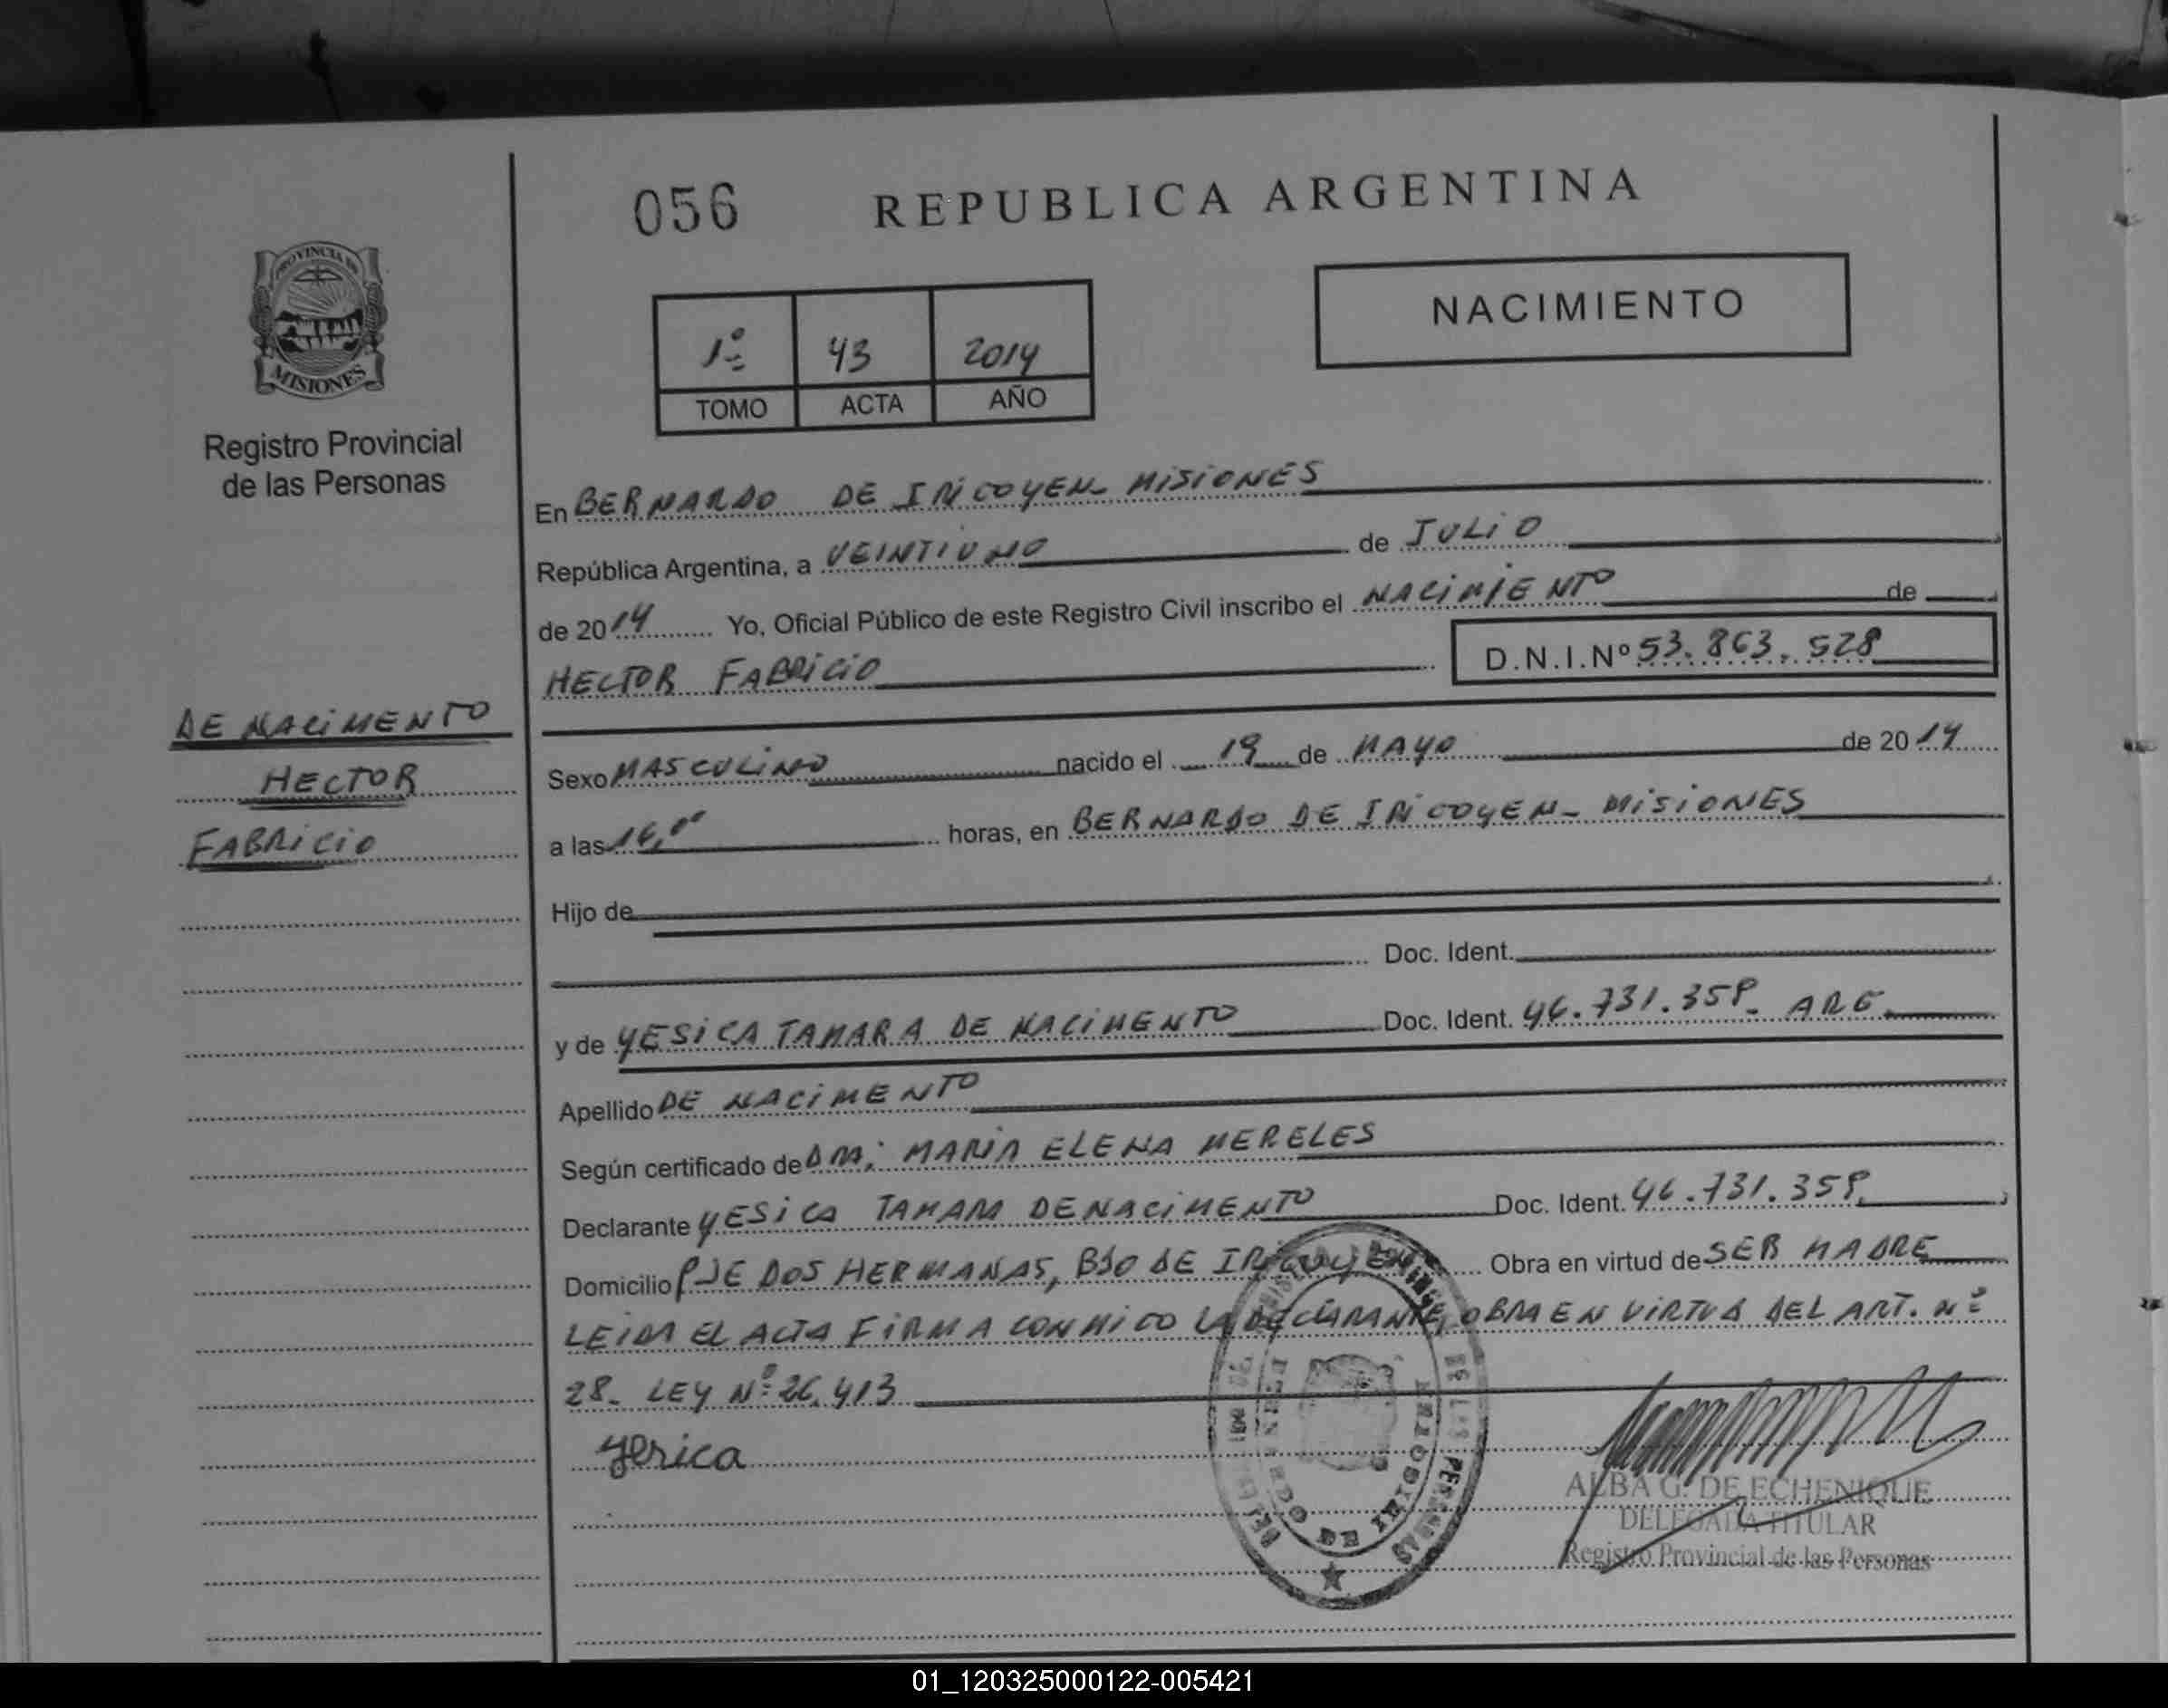 056 REPUBLICA ARGENTINA
PROVINCIA DE
MISIONES
Registro Provincial
de las Personas
NACIMIENTO
1º 43 2014
TOMO ACTA AÑO
En BERNARDO DE IRIGOYEN - MISIONES
República Argentina, a VEINTIUNO de JULIO
de 2014 Yo, Oficial Público de este Registro Civil inscribo el NACIMIENTO de
HECTOR FABRICIO D.N.I.Nº 53.863.528
DE NACIMENTO
HECTOR
FABRICIO
Sexo MASCULINO nacido el 19 de MAYO de 2014
a las 16,00 horas, en BERNARDO DE IRIGOYEN - MISIONES
Hijo de
Doc. Ident.
y de YESICA TAMARA DE NACIMENTO Doc. Ident. 46.731.359 - ARG
Apellido DE NACIMENTO
Según certificado de DRA: MARIA ELENA MERELES
Declarante YESICA TAMARA DE NACIMENTO Doc. Ident. 46.731.359
Domicilio PJE DOS HERMANAS, BDO DE IRIGOYEN Obra en virtud de SER MADRE
LEIDA EL ACTA FIRMA CONMIGO LA DECLARANTE, OBRA EN VIRTUD DEL ART. Nº
28- LEY Nº 26.413
Yesica
ALBA G. DE ECHENIQUE
DELEGADA TITULAR
Registro Provincial de las Personas
DE LAS PERSONAS
01_120325000122-005421